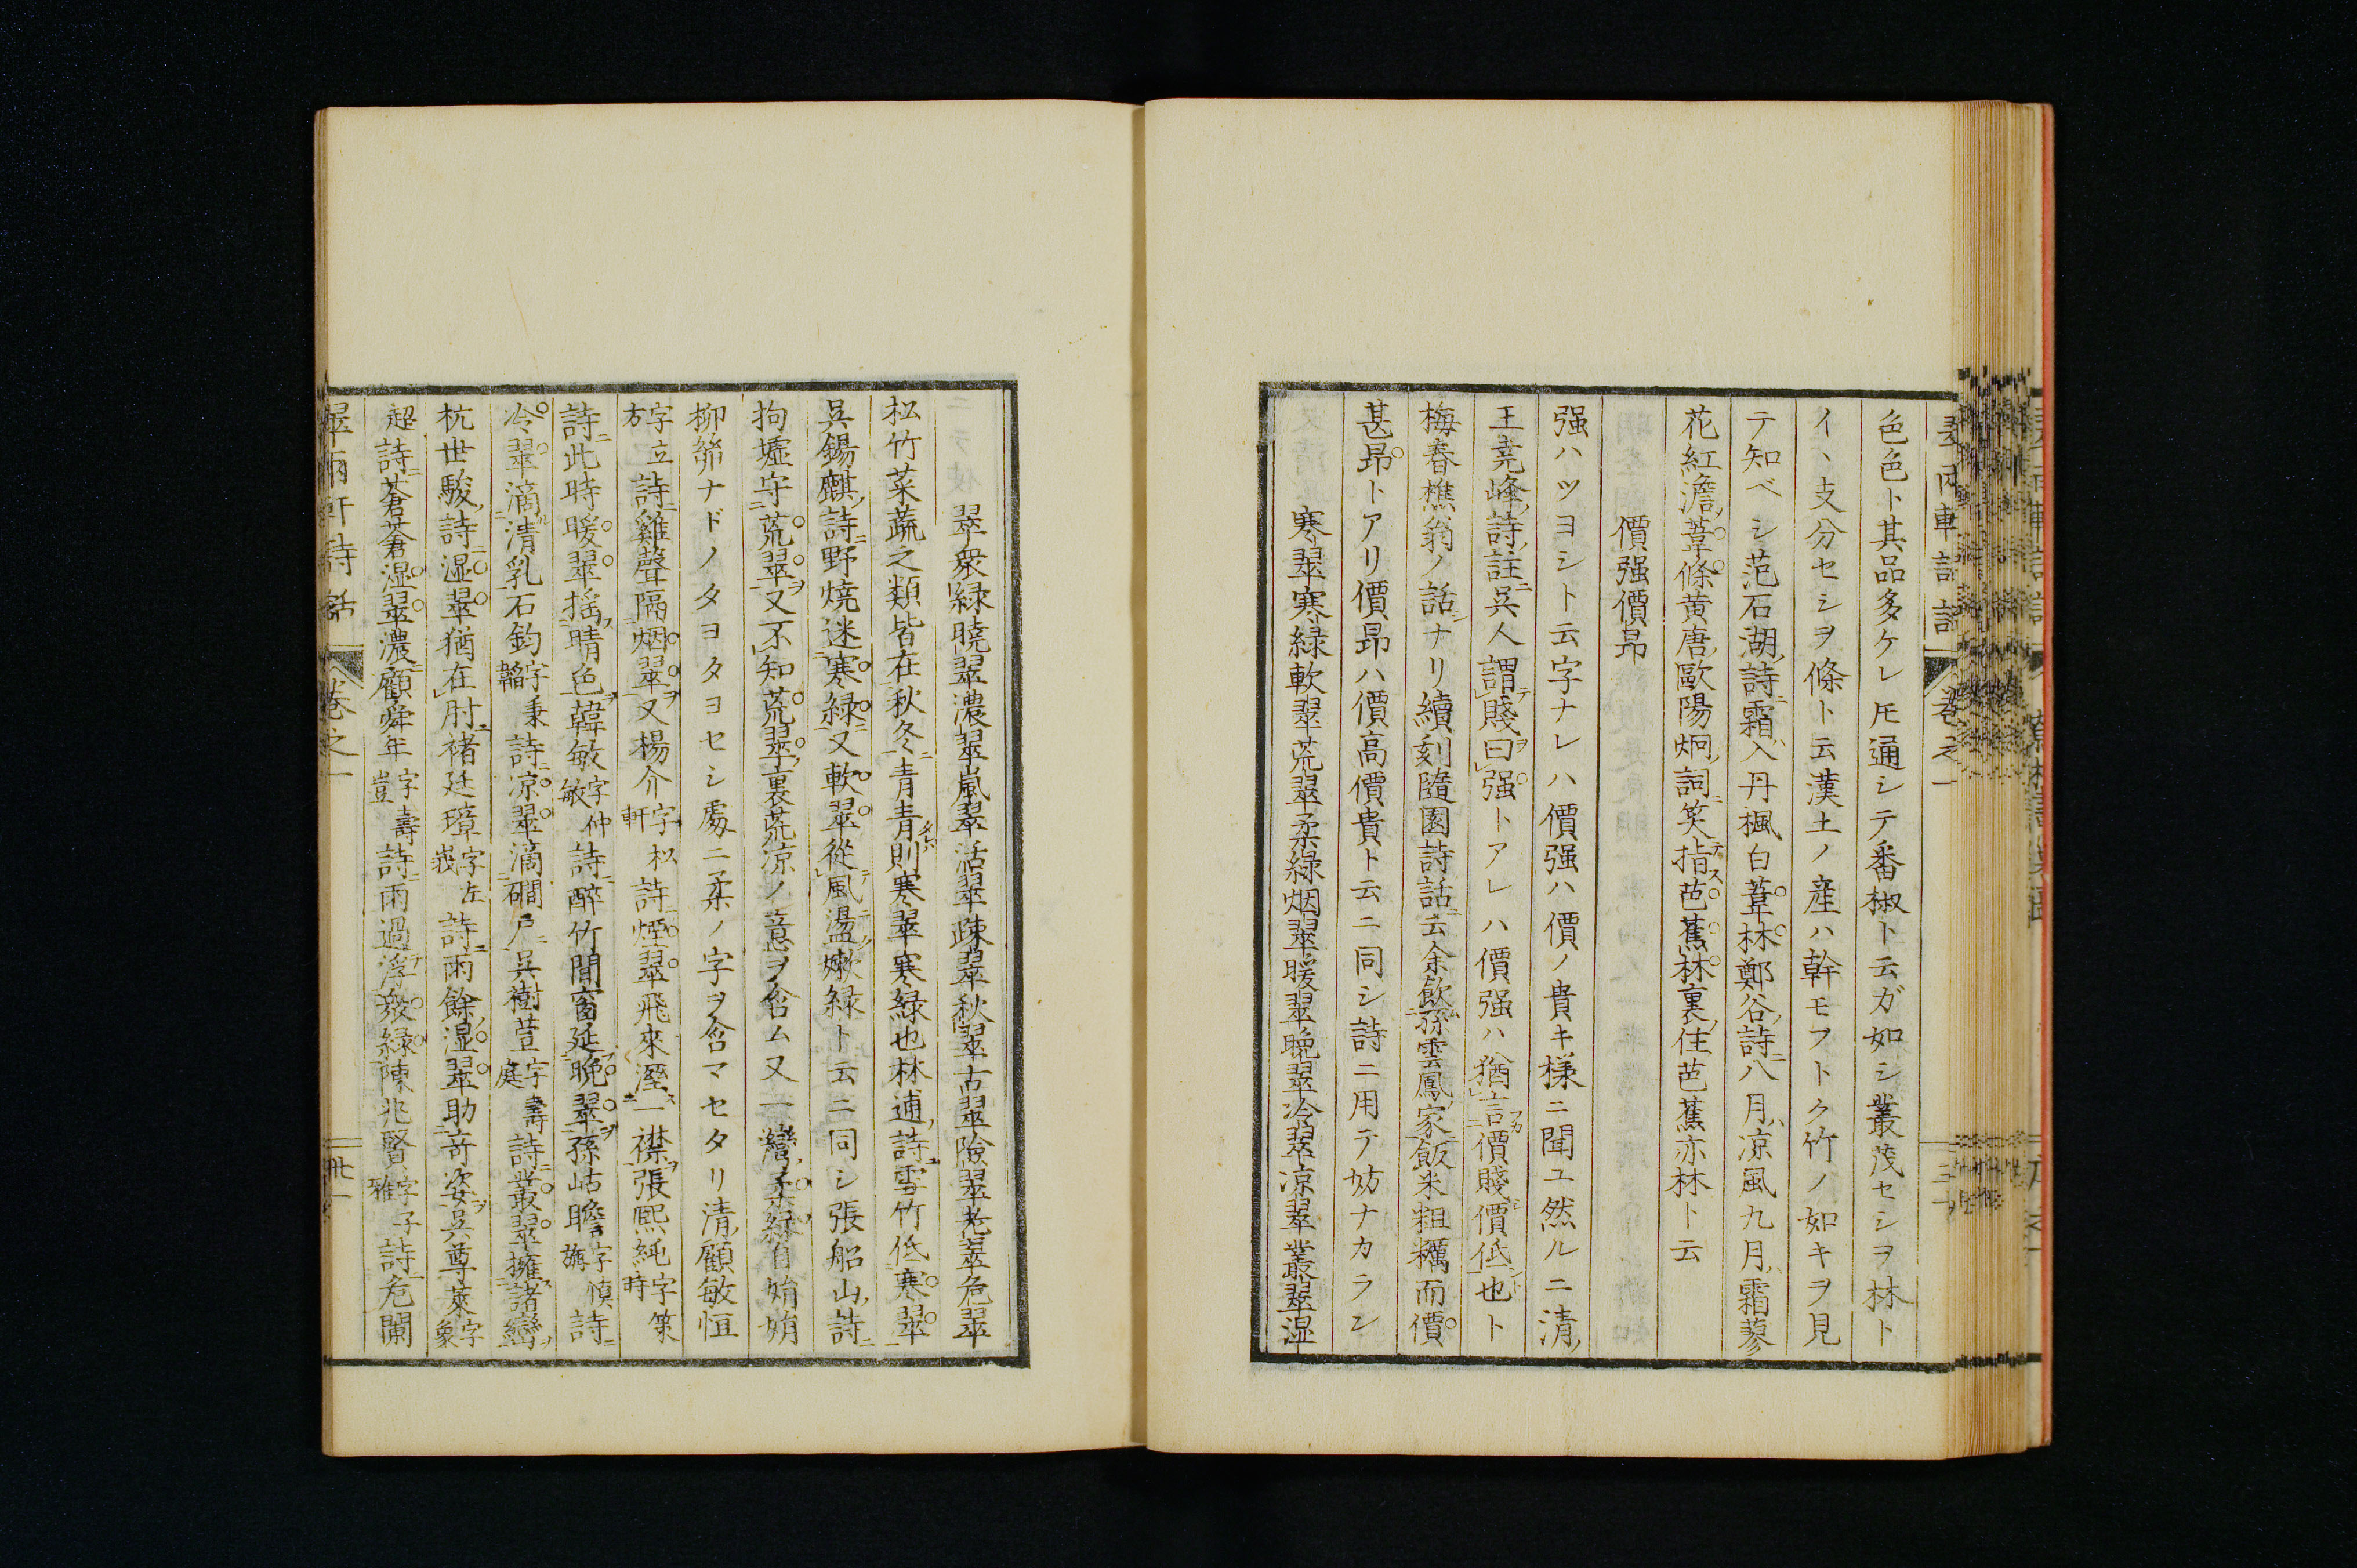 色色ト其品多ケレ𪜈通シテ番椒ト云ガ如シ叢茂セシヲ林ト
イヽ支分セシヲ條ト云漢土ノ産ハ幹モフトク竹ノ如キヲ見
テ知ベシ范石湖詩ニ霜入丹楓白葦林鄭谷詩ニ八月涼風九月霜蓼
花紅澹葦條黄唐歐陽炯詞ニ笑指芭蕉林裏住芭蕉亦林ト云
價强價昻
强ハツヨシト云字ナレハ價强ハ價ノ貴キ様ニ聞ユ然ルニ清
王堯峰詩註ニ吳人謂賤曰强トアレハ價强ハ猶言價賤價低也ト
梅春樵翁ノ話ナリ續刻隨園詩話ニ云余飲孫雲鳳家飯米粗糲而價
甚昻トアリ價昻ハ價高價貴ト云ニ同シ詩ニ用テ妨ナカラン
寒翠寒緑軟翠荒翠柔緑烟翠暖翠晩翠冷翠涼翠叢翠湿
翠衆緑曉翠濃翠嵐翠活翠疎翠秋翠古翠險翠老翠危翠
松竹菜蔬之類皆在秋冬ニ青青則寒翠寒緑也林逋詩雪竹低寒翠
吳錫麒詩ニ野燒迷寒緑又軟翠從風盪嫩緑ト云ニ同シ張船山詩ニ
拘墟守荒翠ヲ又不知荒翠裏荒涼ノ意ヲ含ム又一灣柔緑自娟娟
柳篛ナドノタヨタヨセシ處ニ柔ノ字ヲ含マセタリ清顧敏恒
字立方詩ニ雞聲隔烟翠ヲ又楊介字松軒詩煙翠飛來溼一襟張熙純字策時
詩ニ此時暖翠搖晴色韓敏字仲敏詩ニ醉竹閒窗延晩翠孫岵瞻字慎旃詩ニ
冷翠滴清乳石鈞字秉韜詩ニ涼翠滴磵戸吳樹萱字壽庭詩ニ叢翠擁諸巒
杭世駿詩ニ湿翠猶在肘褚廷璋字左峩詩雨餘湿翠助竒姿吳尊萊字象
超詩ニ蒼蒼湿翠濃顧舜年字壽豈詩ニ雨過浮衆緑陳兆賢字子雅詩危闌
翠雨軒詩話 卷之一 卅一